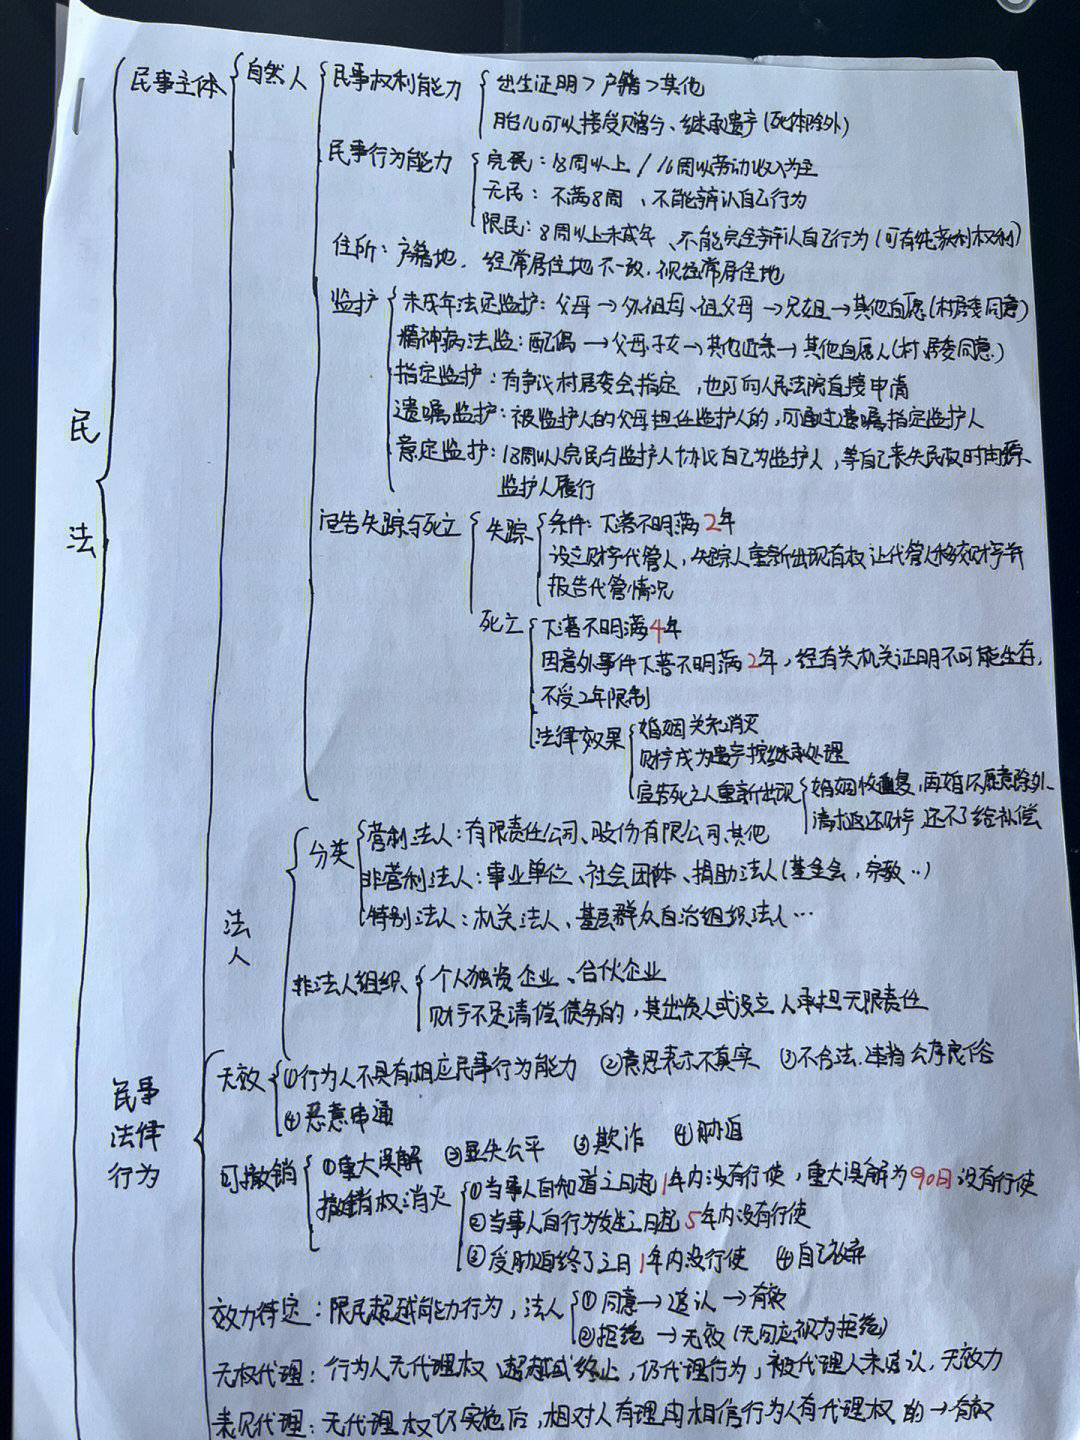 民法
民事主体
自然人
民事权利能力
出生证明>户籍>其他
胎儿可以接受赠与、继承遗产(死体除外)
民事行为能力
完民:18周以上/16周以劳动收入为主
无民:不满8周、不能辨认自己行为
限民:8周以上未成年、不能完全辨认自己行为(可有纯获利权利)
住所:户籍地.经常居住地不一致,视经常居住地
监护
未成年法定监护:父母→外祖母、祖父母→兄姐→其他自愿(村居委同意)
精神病法监:配偶→父母.子女→其他近亲→其他自愿人(村.居委同意.)
指定监护:有争议村居委会指定,也可向人民法院直接申请
遗嘱监护:被监护人的父母担任监护人的,可通过遗嘱指定监护人
意定监护:18周以人完民与监护人协议自己为监护人,等自己丧失民权时由
监护人履行
宣告失踪与死亡
失踪
条件:下落不明满2年
设立财产代管人,失踪人重新出现有权让代管人移交财产并
报告代管情况
死亡
下落不明满4年
因意外事件下落不明满2年,经有关机关证明不可能生存,
不受2年限制
法律效果
婚姻关系消灭
财产成为遗产按继承处理
宣告死亡人重新出现
婚姻恢复,再婚以愿意除外
请求返还财产,还不了给补偿
法人
分类
营利法人:有限责任公司、股份有限公司、其他
非营利法人:事业单位、社会团体、捐助法人(基金会,宗教..)
特别法人:机关法人、基层群众自治组织法人…
非法人组织
个人独资企业、合伙企业
财产不足清偿债务的,其出资人或设立人承担无限责任
民事法律行为
无效
①行为人不具有相应民事行为能力 ②意思表示不真实 ③不合法.违背公序良俗
④恶意串通
可撤销
①重大误解 ②显失公平 ③欺诈 ④胁迫
撤销权消灭
①当事人自知道之日起1年内没有行使,重大误解为90日没有行使
②当事人自行为发生之日起5年内没有行使
③受胁迫终了之日1年内没行使 ④自己放弃
效力待定:限民超越能力行为,法人
①同意→追认→有效
②拒绝→无效(无回应视为拒绝)
无权代理:行为人无代理权、超越或终止,仍代理行为,被代理人未追认,无效力
表见代理:无代理权仍实施后,相对人有理由相信行为人有代理权的→有效